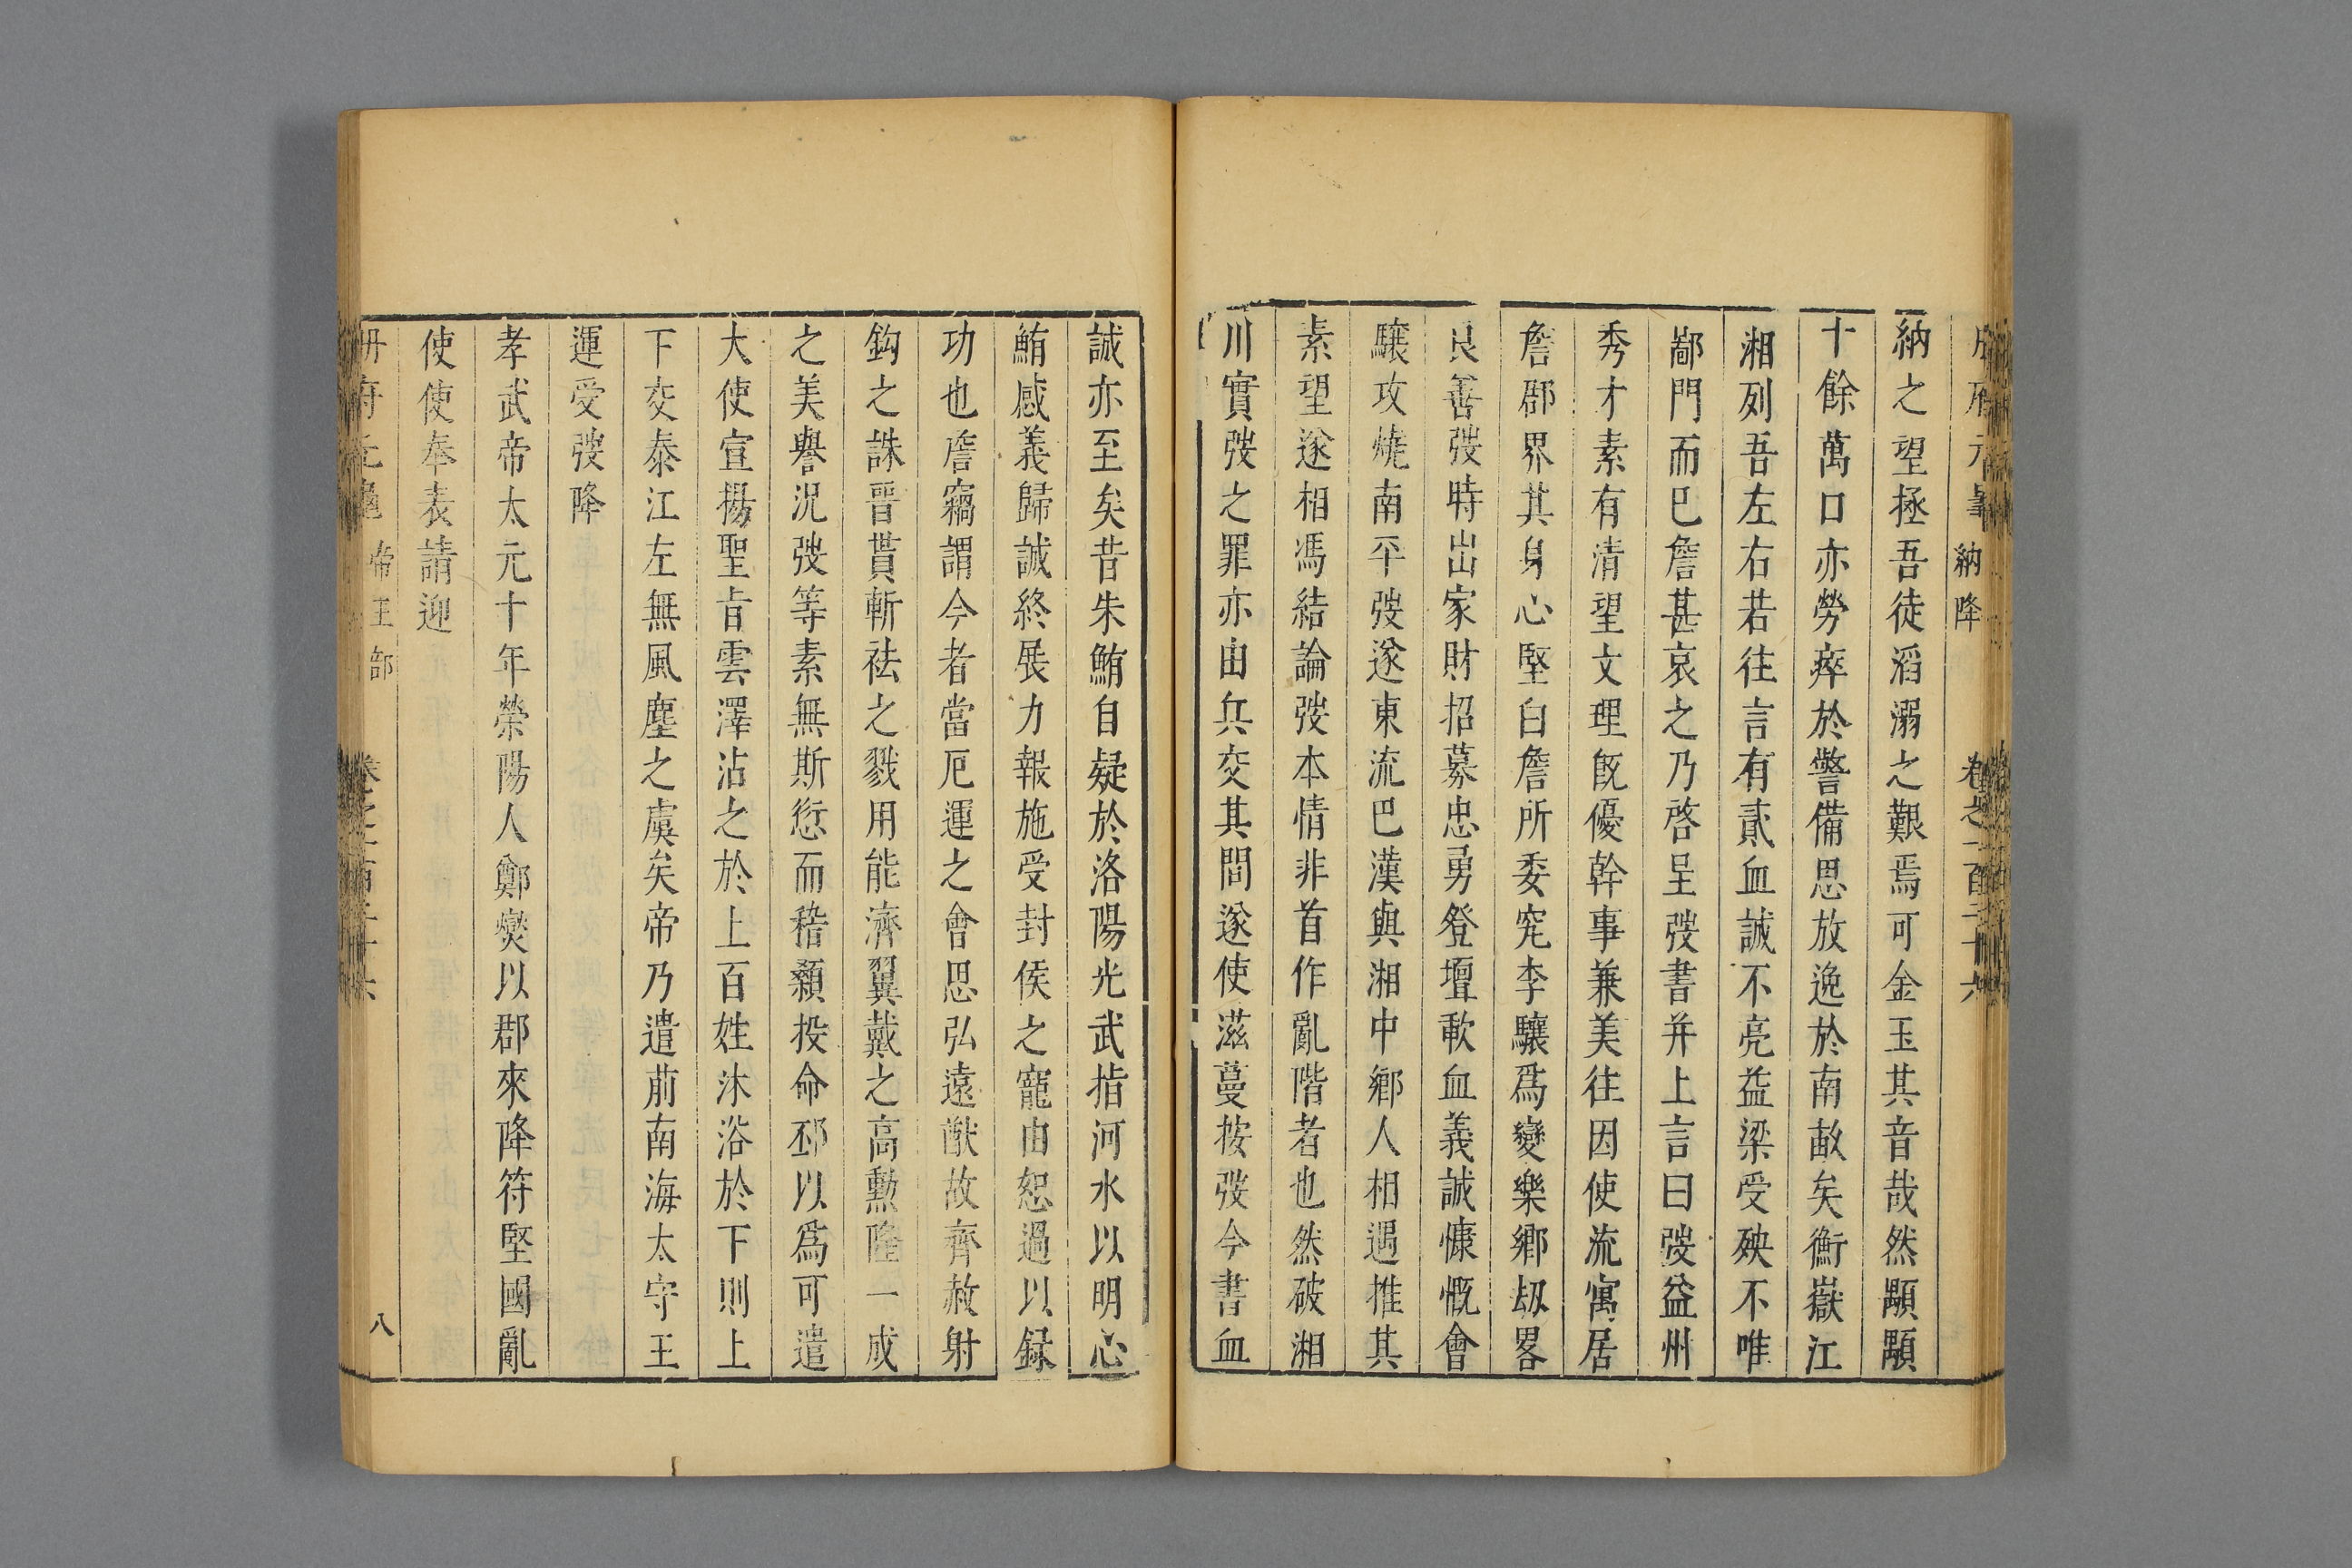 冊府元龜 納降 卷之一百二十六
納之望拯吾徒滔溺之艱焉可金玉其音哉然顒顒
十餘萬口亦勞瘁於警備思放逸於南畝矣衡嶽江
湘列吾左右若往言有貳血誠不亮益梁受殃不唯
鄢門而巳詹甚哀之乃啓呈弢書并上言曰弢益州
秀才素有清望文理旣優幹事兼美往因使流寓居
詹郡界其身心堅白詹所委究李驤爲變樂鄉刼畧
良善弢時出家財招募忠勇登壇歃血義誠慷慨會
驤攻燒南平弢遂東流巴漢與湘中鄉人相遇推其
素望遂相馮結論弢本情非首作亂階者也然破湘
川實弢之罪亦由兵交其間遂使滋蔓按弢今書血
誠亦至矣昔朱鮪自疑於洛陽光武指河水以明心
鮪感義歸誠終展力報施受封侯之寵由恕過以録
功也詹竊謂今者當厄運之會思弘遠猷故齊赦射
鈎之誅晉貰斬袪之戮用能濟翼戴之高勳隆一成
之美譽況弢等素無斯愆而稽顙投命邳以爲可遣
大使宣揚聖旨雲澤沾之於上百姓沐浴於下則上
下交泰江左無風塵之虞矣帝乃遣前南海太守王
運受弢降
孝武帝太元十年榮陽人鄭燮以郡來降符堅國亂
使使奉表請迎
冊府元龜 帝王部 卷之一百二十六 八